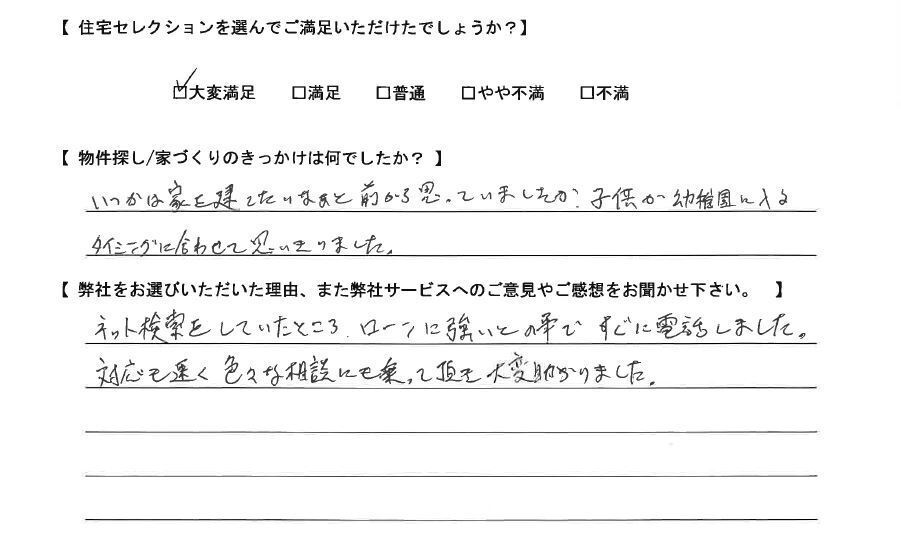 【 住宅セレクションを選んでご満足いただけたでしょうか？】
☑大変満足 □満足 □普通 □やや不満 □不満
【 物件探し/家づくりのきっかけは何でしたか？ 】
いつかは家を建てたいなぁと前から思っていましたが、子供が幼稚園に入る
タイミングに合わせて思いきりました。
【 弊社をお選びいただいた理由、また弊社サービスへのご意見やご感想をお聞かせ下さい。 】
ネット検索をしていたところ、ローンに強いとの事で すぐに電話しました。
対応も速く 色々な相談にも乗って頂き 大変助かりました。